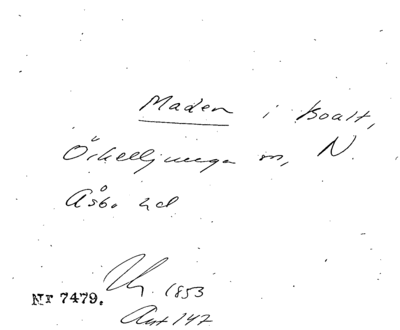 Maden i Boalt,
Örkelljunga sn, N.
Åsbo hd
1853
Nr 7479.
Akt 147